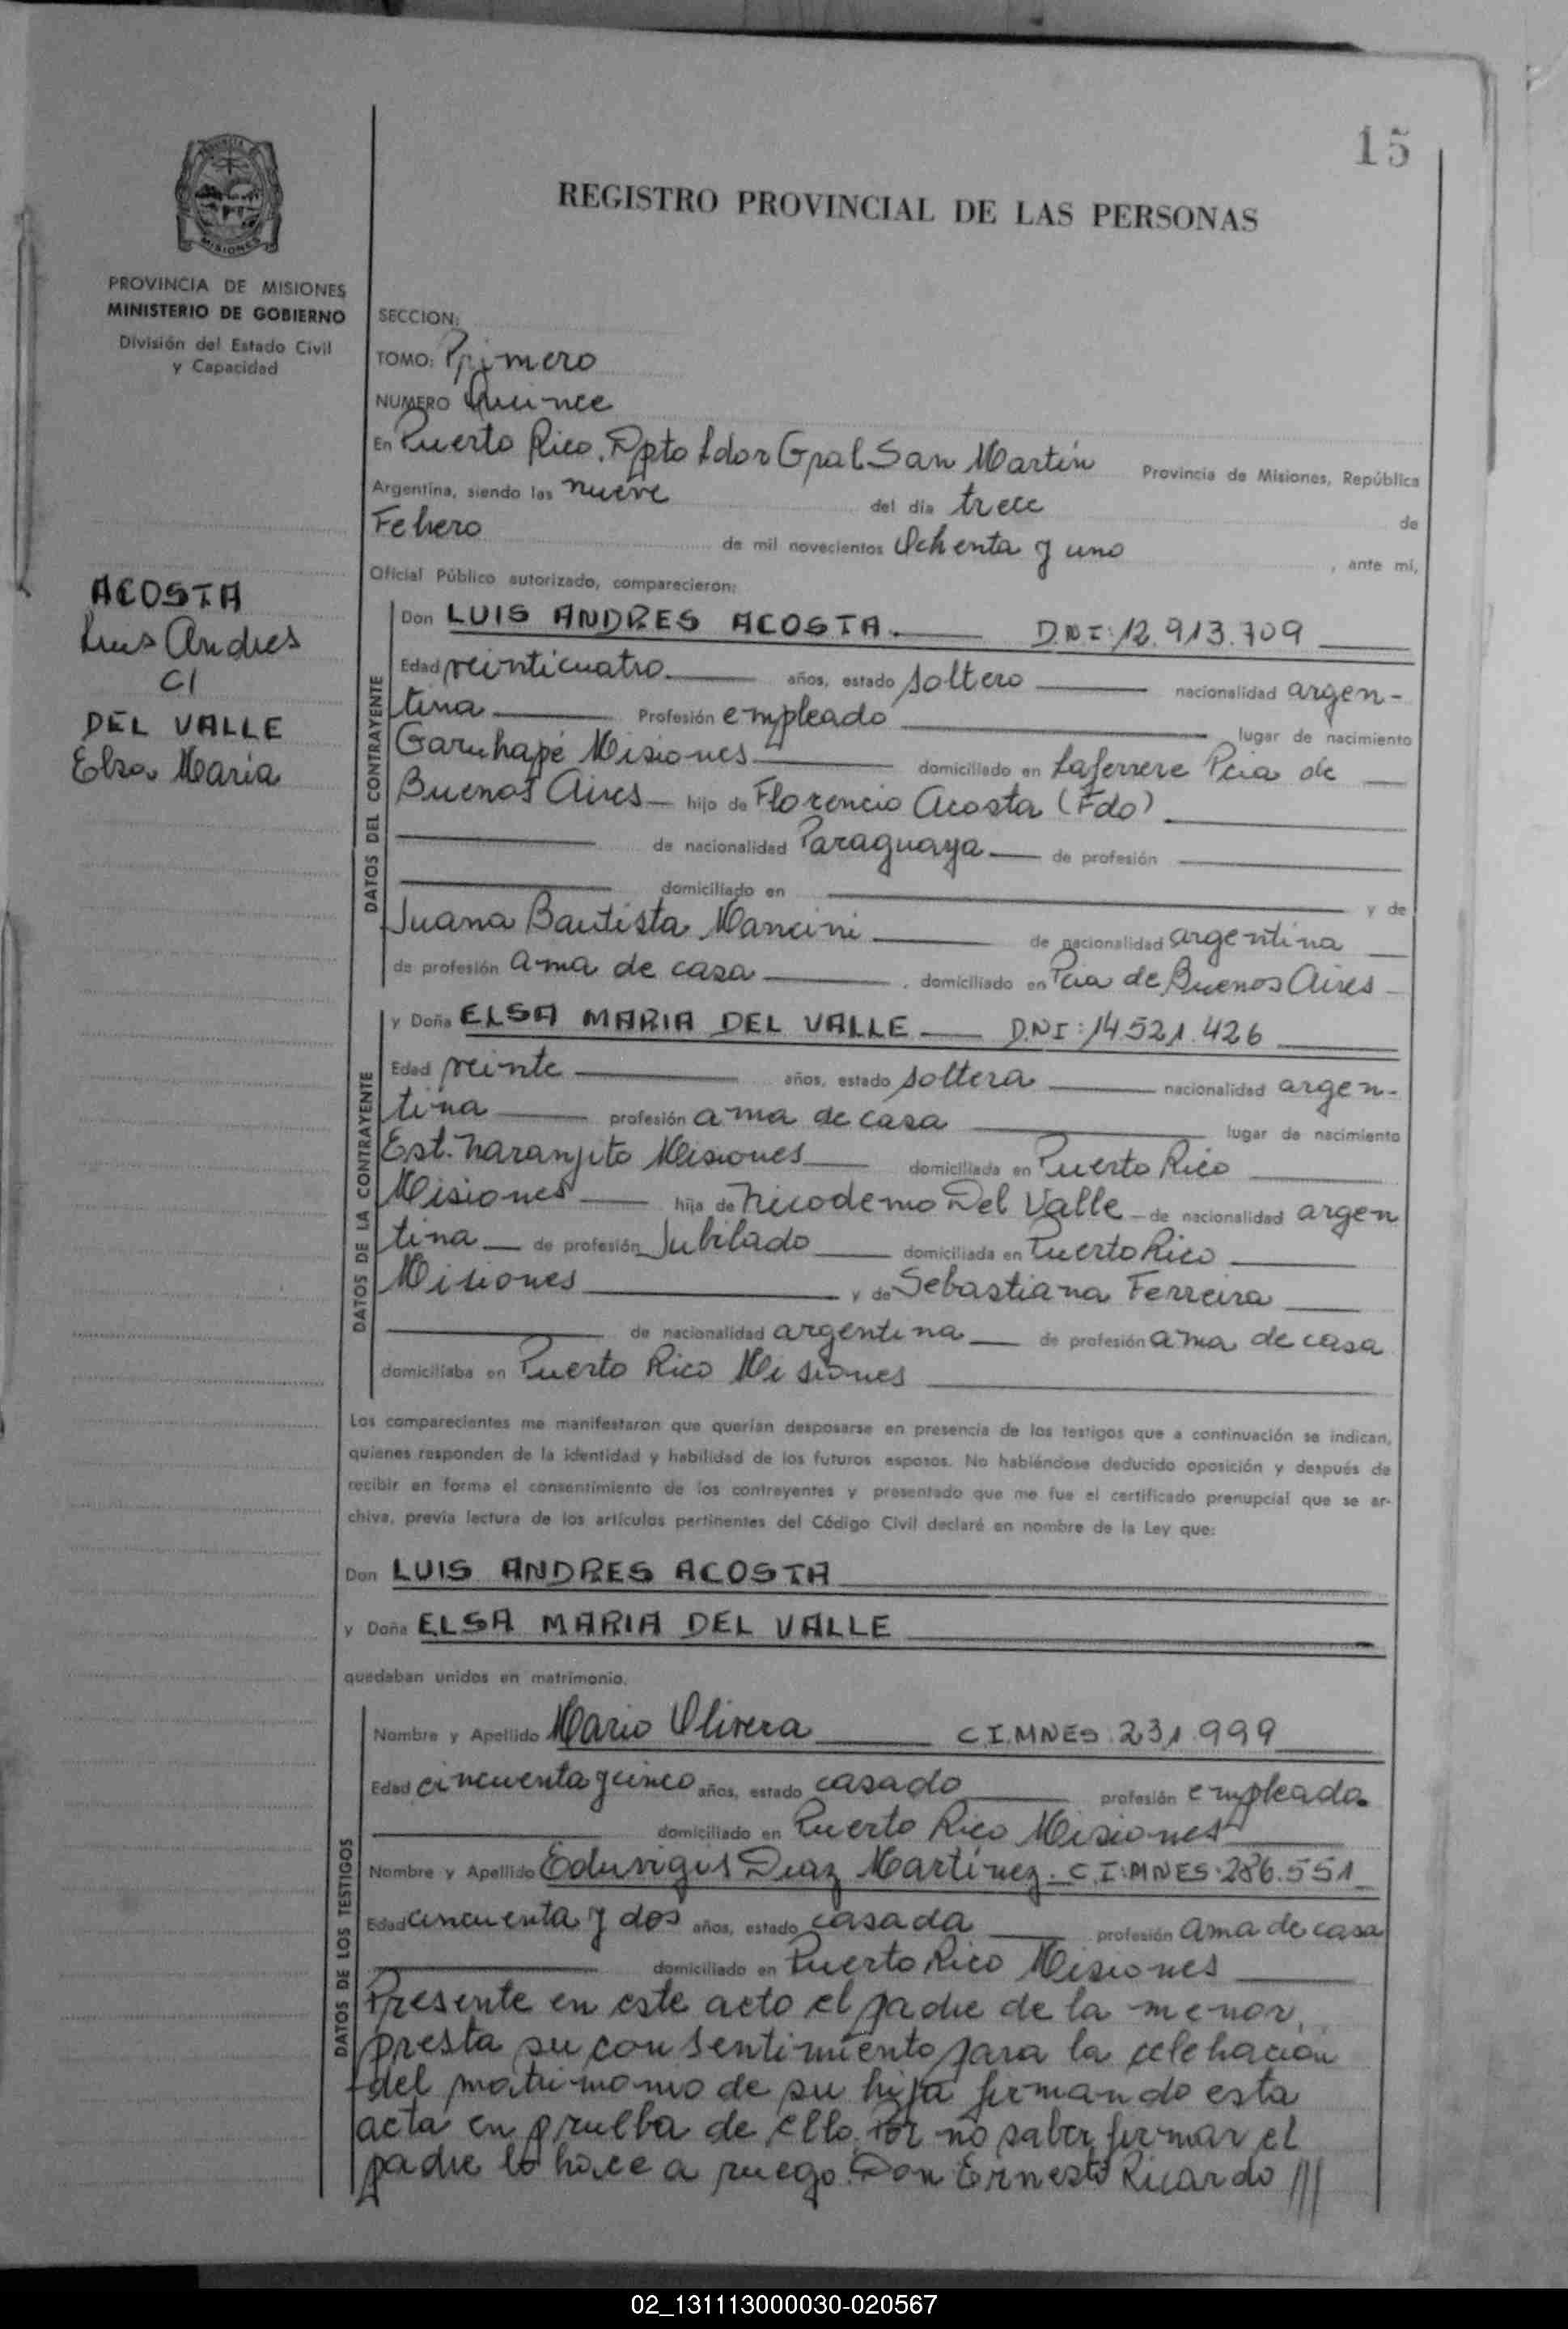 15
REGISTRO PROVINCIAL DE LAS PERSONAS
PROVINCIA DE MISIONES
MINISTERIO DE GOBIERNO
División del Estado Civil
y Capacidad
ACOSTA
Luis Andres
C/
DEL VALLE
Elsa Maria
SECCION:
TOMO: Primero
NUMERO Quince
En Puerto Rico. Dpto Ldor Gral San Martín Provincia de Misiones, República
Argentina, siendo las nueve del día trece de
Febrero de mil novecientos Ochenta y uno, ante mí,
Oficial Público autorizado, comparecieron:
DATOS DEL CONTRAYENTE
Don LUIS ANDRES ACOSTA. D.N.I: 12.913.709
Edad veinticuatro. años, estado soltero nacionalidad argen-
tina Profesión empleado lugar de nacimiento
Garuhapé Misiones domiciliado en Laferrere Pcia de
Buenos Aires hijo de Florencio Acosta (Fdo)
de nacionalidad Paraguaya de profesión
domiciliado en y de
Juana Bautista Mancini de nacionalidad argentina
de profesión ama de casa, domiciliado en Pcia de Buenos Aires
DATOS DE LA CONTRAYENTE
y Doña ELSA MARIA DEL VALLE D.N.I: 14.521.426
Edad veinte años, estado soltera nacionalidad argen-
tina profesión ama de casa lugar de nacimiento
Est. Naranjito Misiones domiciliada en Puerto Rico
Misiones hija de Nicodemo Del Valle de nacionalidad argen
tina de profesión Jubilado domiciliada en Puerto Rico
Misiones y de Sebastiana Ferreira
de nacionalidad argentina de profesión ama de casa
domiciliaba en Puerto Rico Misiones
Los comparecientes me manifestaron que querían desposarse en presencia de los testigos que a continuación se indican,
quienes responden de la identidad y habilidad de los futuros esposos. No habiéndose deducido oposición y después de
recibir en forma el consentimiento de los contrayentes y presentado que me fue el certificado prenupcial que se ar-
chiva, previa lectura de los artículos pertinentes del Código Civil declaré en nombre de la Ley que:
Don LUIS ANDRES ACOSTA
y Doña ELSA MARIA DEL VALLE
quedaban unidos en matrimonio.
DATOS DE LOS TESTIGOS
Nombre y Apellido Mario Olivera C.I.MNES.231.999
Edad cincuenta y cinco años, estado casado profesión empleado
domiciliado en Puerto Rico Misiones
Nombre y Apellido Eduvigis Diaz Martínez. C.I:MNES.286.551
Edad cincuenta y dos años, estado casada profesión ama de casa
domiciliado en Puerto Rico Misiones
Presente en este acto el padre de la menor,
presta su consentimiento para la celebración
del matrimonio de su hija firmando esta
acta en prueba de ello. Por no saber firmar el
padre lo hace a ruego Don Ernesto Ricardo ///
02_131113000030-020567